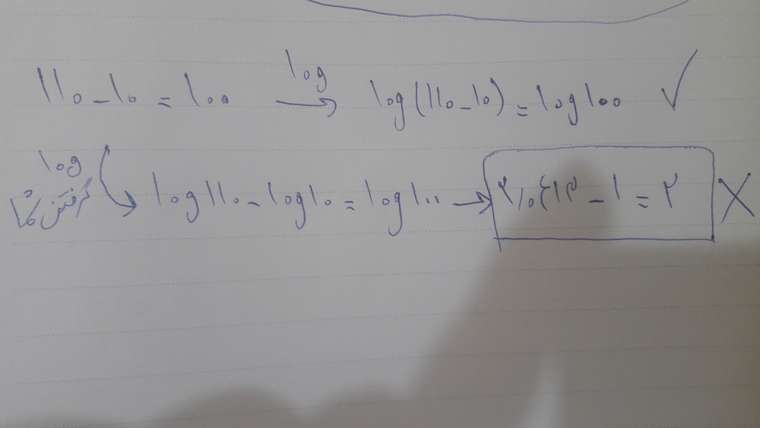 ۱۱۰ - ۱۰ = ۱۰۰ log→ log(۱۱۰ - ۱۰) = log ۱۰۰ ✓
log گرفتن شما ↳ log ۱۱۰ - log ۱۰ = log ۱۰۰ → ۲٫۰٤۱۳ - ۱ = ۲ ✗